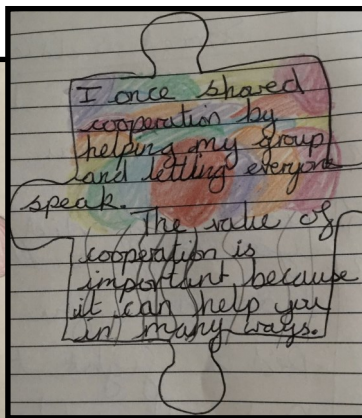 I once shared
cooperation by
helping my group
and letting everyone
speak.
The value of
cooperation is
important because
it can help you
in many ways.